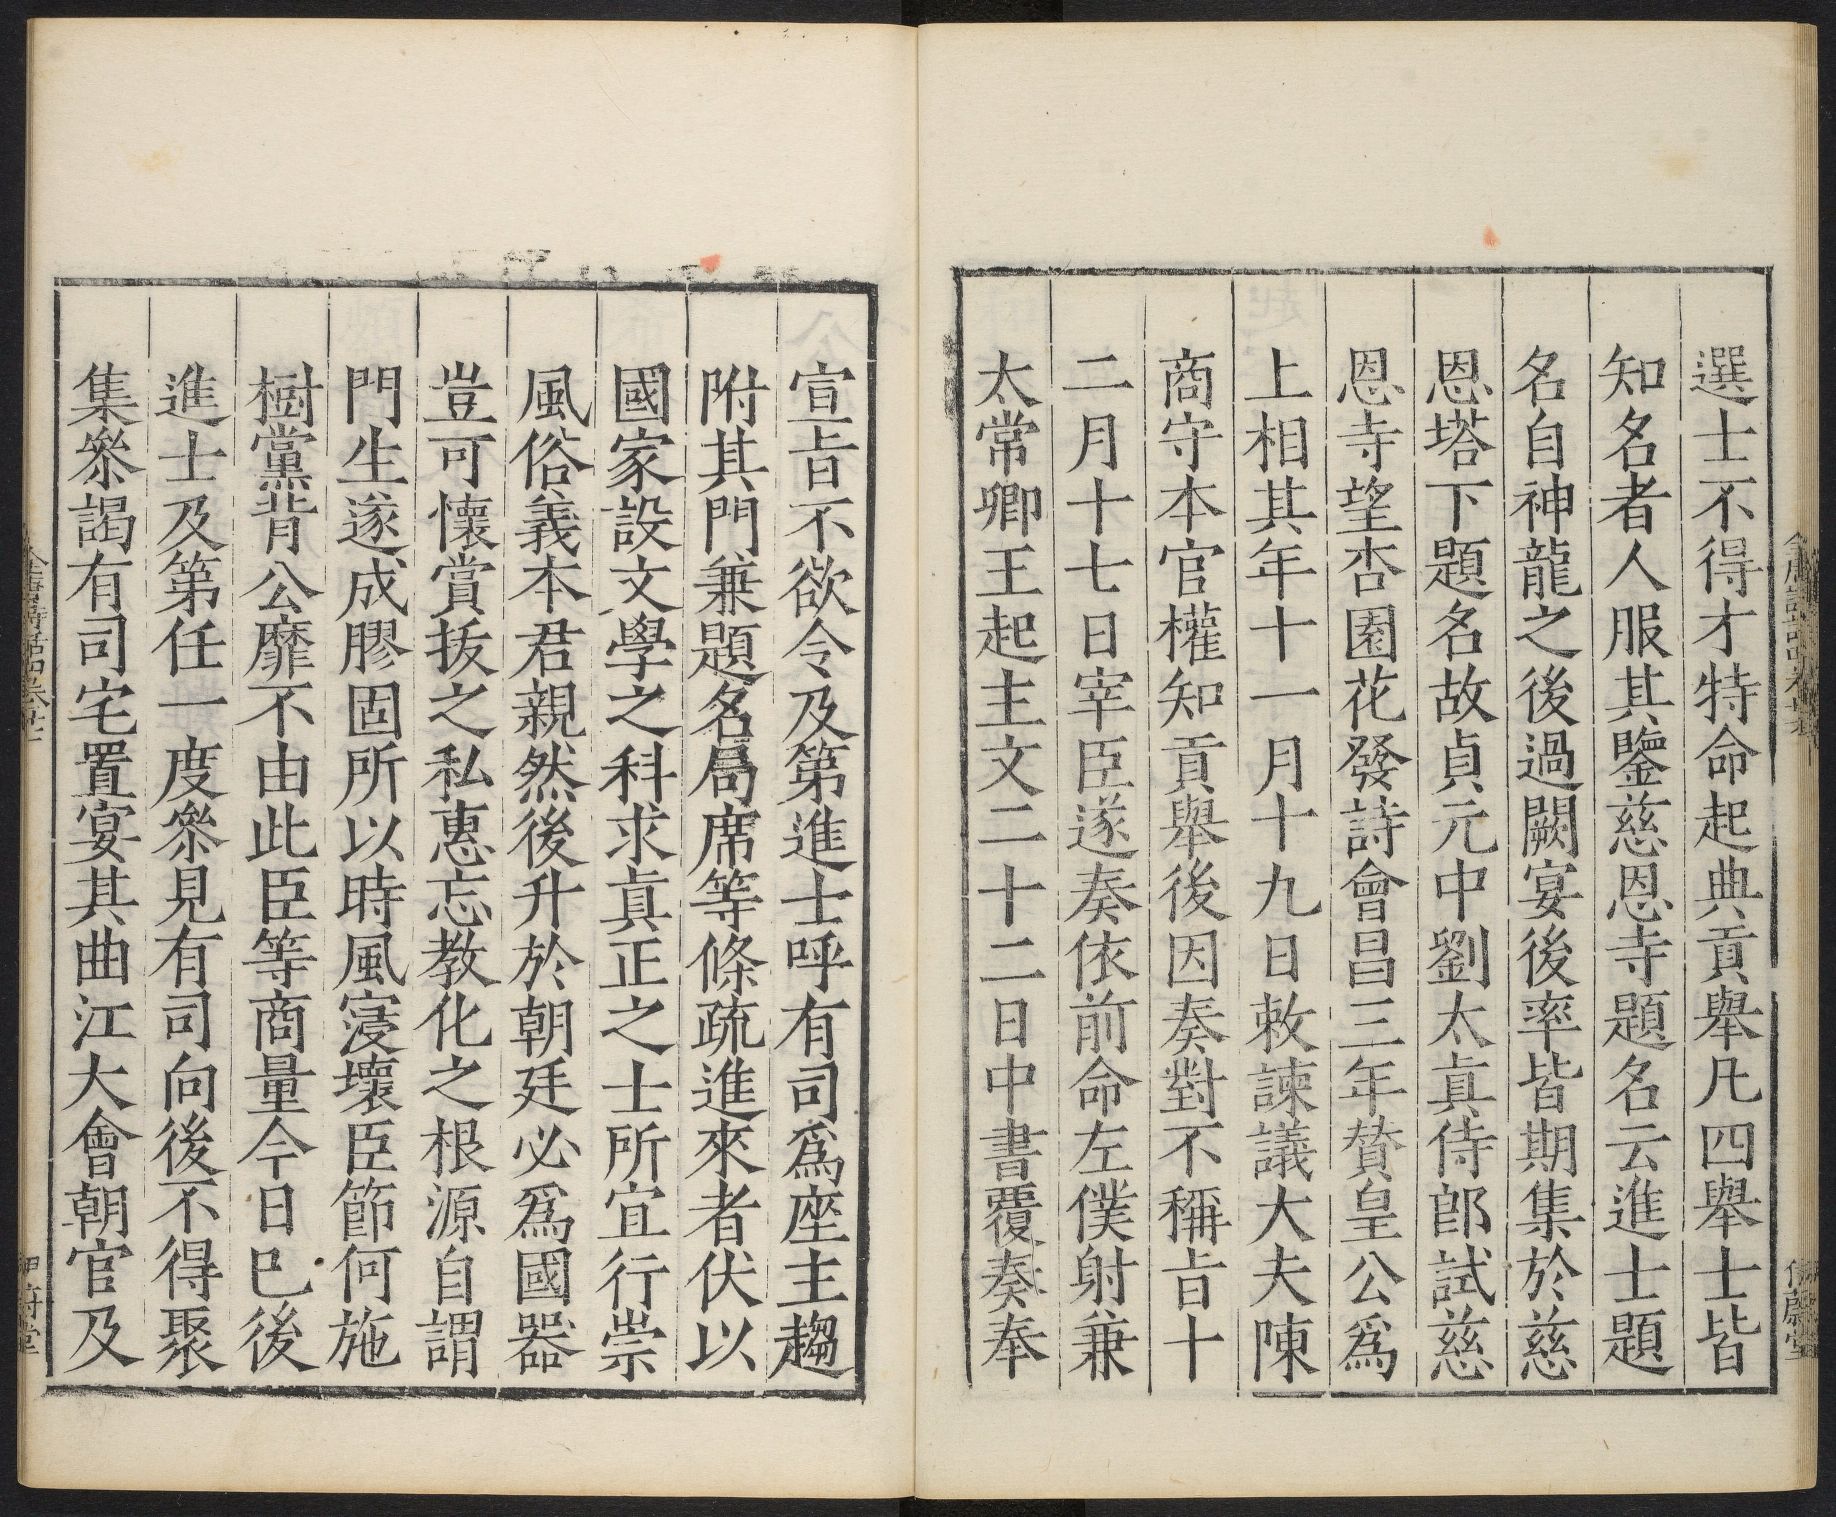 選士不得才特命起典貢舉凡四舉士皆
知名者人服其鑒慈恩寺題名云進士題
名自神龍之後過闕宴後率皆期集於慈
恩塔下題名故貞元中劉太真侍郎試慈
恩寺望杏園花發詩會昌三年贊皇公為
上相其年十一月十九日敕諫議大夫陳
商守本官權知貢舉後因奏對不稱旨十
二月十七日宰臣遂奏依前命左僕射兼
太常卿王起主文二十二日中書覆奏奉
宣旨不欲令及第進士呼有司為座主趨
附其門兼題名局席等條疏進來者伏以
國家設文學之科求真正之士所宜行崇
風俗義本君親然後升於朝廷必為國器
豈可懷賞拔之私惠忘教化之根源自謂
門生遂成膠固所以時風寖壞臣節何施
樹黨背公靡不由此臣等商量今日已後
進士及第任一度叅見有司向後不得聚
集叅謁有司宅置宴其曲江大會朝官及